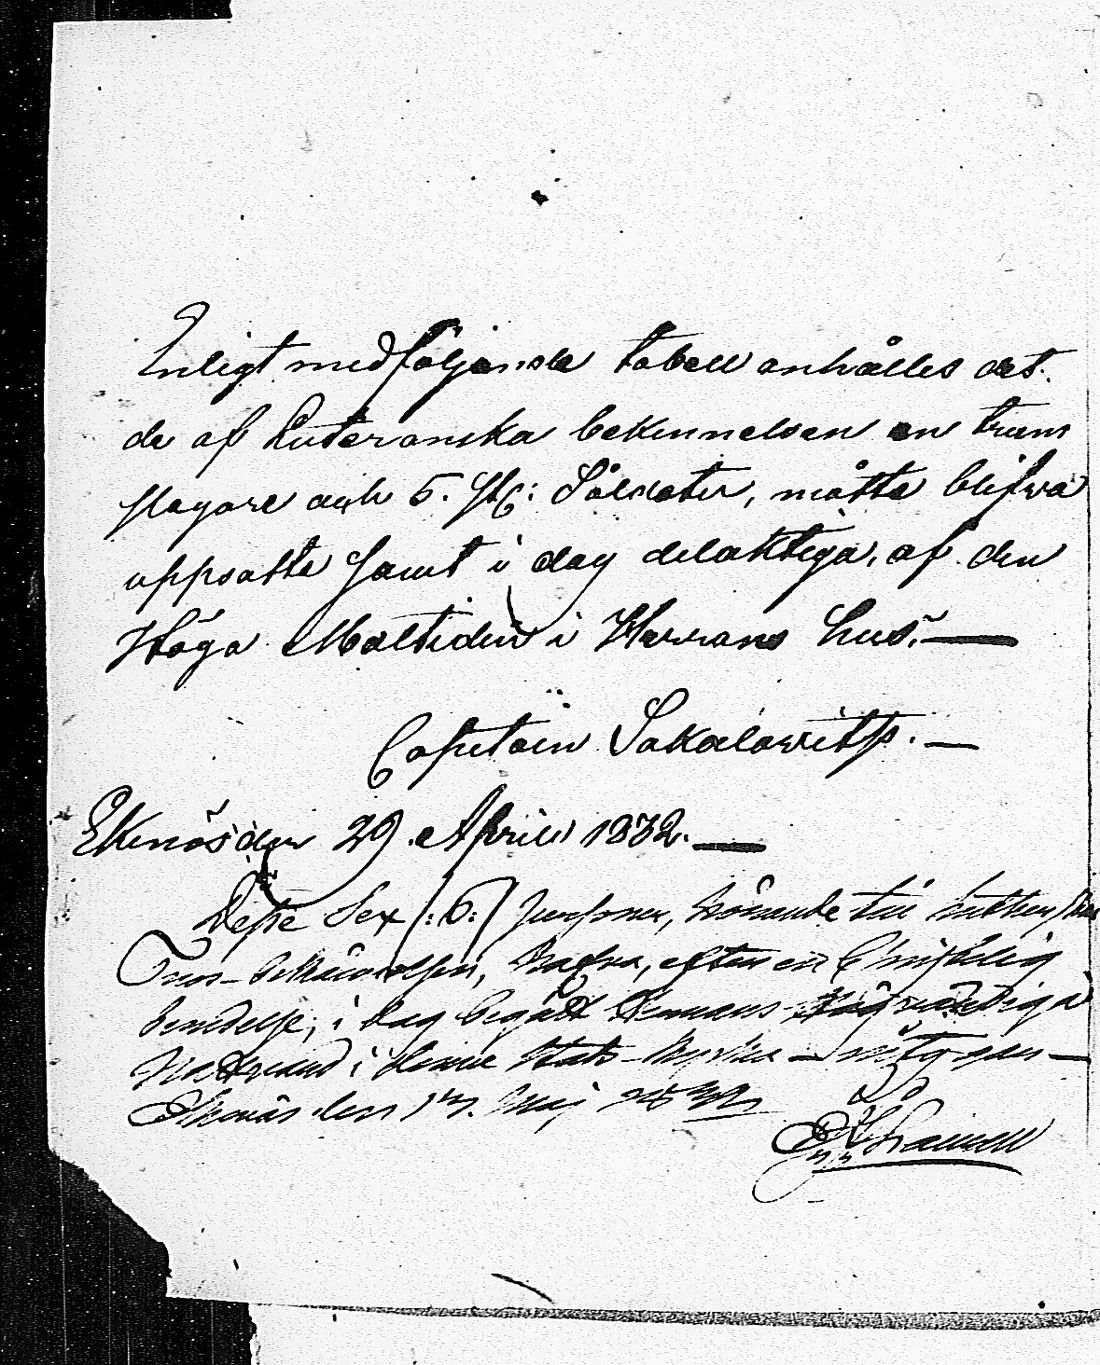 Enligt medföljande tabell anhålles det.
de af Luteranska bekennelsen en trum
slagare och 5. st: Såldater, måtte blifva
uppsatte samt i dag delaktiga, af den
Höga Måltiden i Herrans hus.—
Capitain Sakalowitsh.—
Ekenäs den 29. April 1832.—
Desse Sex /:6:/ Personer, hörande till
Tros-bekännelsen, hafva, efter en Christelig
beredelse, i dag begått Herrans Högvärdiga
Nattvard i denne Stads-Kyrka —
Ekenäs den 1. Maj